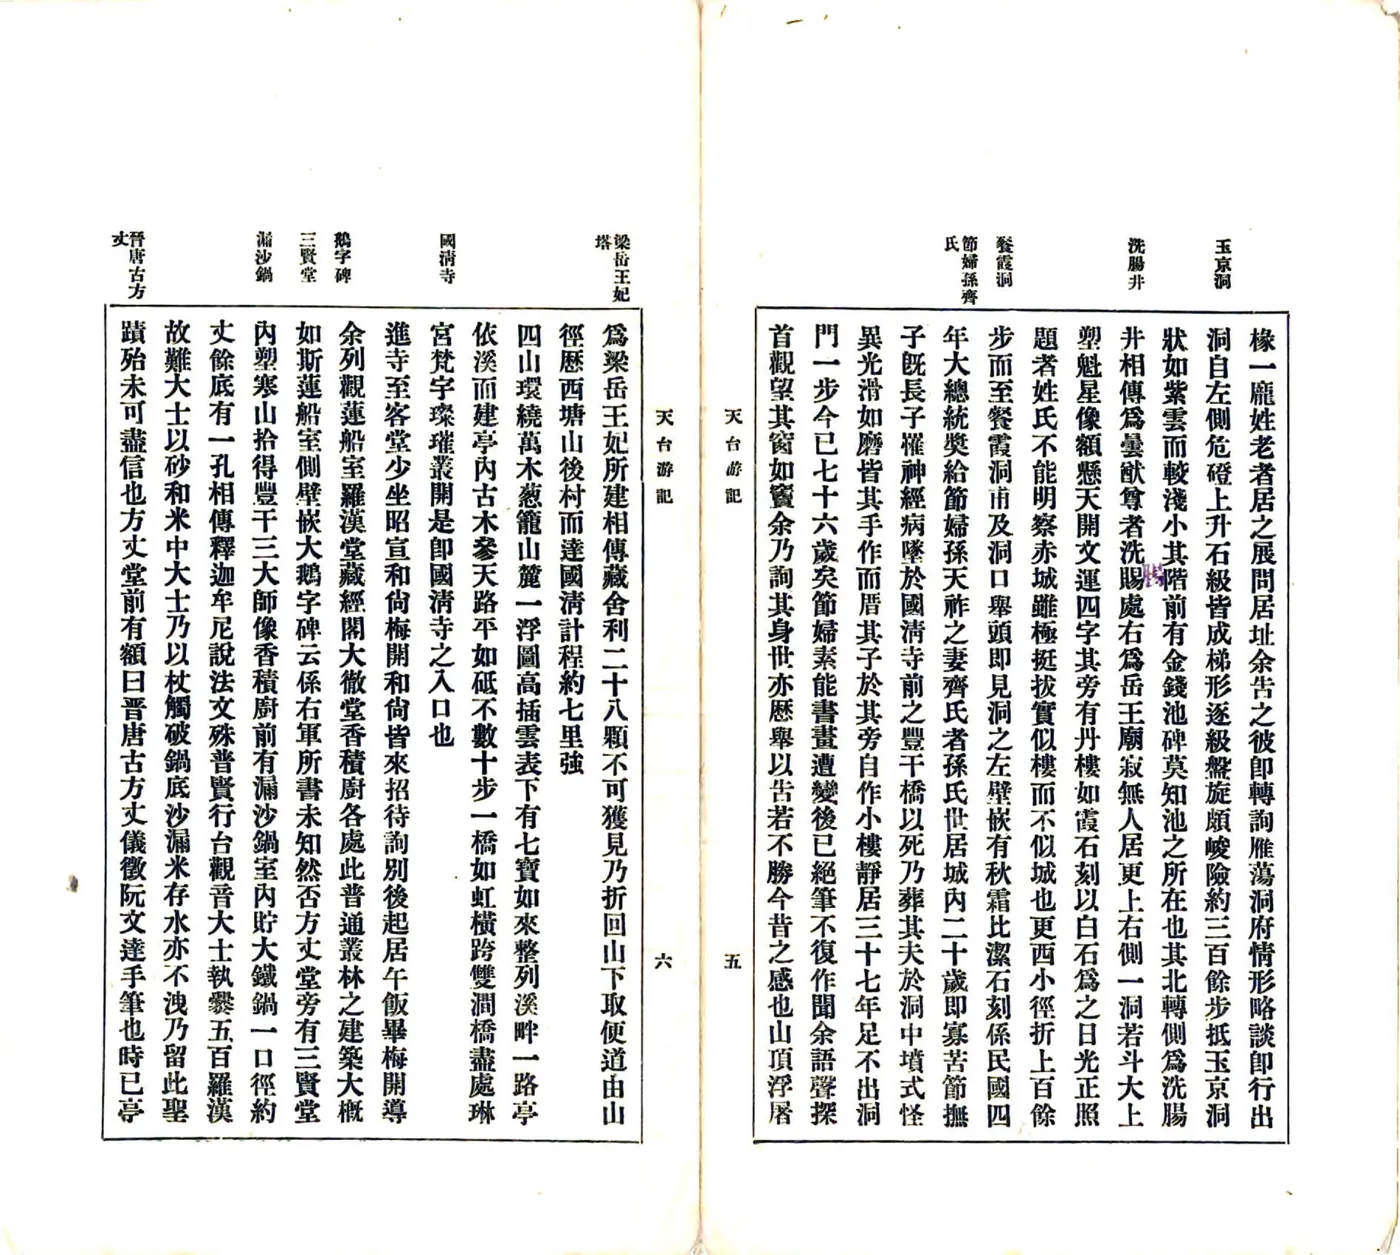 玉京洞
洗腸井
餐霞洞
節婦孫齊
氏
椽一龐姓老者居之展問居址余告之彼卽轉詢雁蕩洞府情形略談卽行出
洞自左側危磴上升石級皆成梯形逐級盤旋頗峻險約三百餘步抵玉京洞
狀如紫雲而較淺小其階前有金錢池碑莫知池之所在也其北轉側爲洗腸
井相傳爲曇猷尊者洗賜處右爲岳王廟寂無人居更上右側一洞若斗大上
腸
塑魁星像額懸天開文運四字其旁有丹樓如霞石刻以白石爲之日光正照
題者姓氏不能明察赤城雖極挺拔實似樓而不似城也更西小徑折上百餘
步而至餐霞洞甫及洞口舉頭卽見洞之左壁嵌有秋霜比潔石刻係民國四
年大總統奬給節婦孫天祚之妻齊氏者孫氏世居城內二十歲卽寡苦節撫
子旣長子罹神經病墜於國淸寺前之豐干橋以死乃葬其夫於洞中墳式怪
異光滑如磨皆其手作而厝其子於其旁自作小樓靜居三十七年足不出洞
門一步今已七十六歲矣節婦素能書畫遭變後已絕筆不復作聞余語聲探
首觀望其窗如竇余乃詢其身世亦歷舉以吿若不勝今昔之感也山頂浮屠
天台游記
五
天台游記
六
梁岳王妃
塔
國淸寺
鵝字碑
三賢堂
漏沙鍋
晉唐古方
丈
爲梁岳王妃所建相傳藏舍利二十八顆不可獲見乃折回山下取便道由山
徑歷西塘山後村而達國淸計程約七里強
四山環繞萬木葱籠山麓一浮圖高插雲表下有七寶如來整列溪畔一路亭
依溪而建亭內古木參天路平如砥不數十步一橋如虹橫跨雙澗橋盡處琳
宮梵宇璨璀叢開是卽國淸寺之入口也
進寺至客堂少坐昭宣和尙梅開和尙皆來招待詢別後起居午飯畢梅開導
余列觀蓮船室羅漢堂藏經閣大徹堂香積廚各處此普通叢林之建築大槪
如斯蓮船室側壁嵌大鵝字碑云係右軍所書未知然否方丈堂旁有三賢堂
內塑寒山拾得豐干三大師像香積廚前有漏沙鍋室內貯大鐵鍋一口徑約
丈餘底有一孔相傳釋迦牟尼說法文殊普賢行台觀音大士執爨五百羅漢
故難大士以砂和米中大士乃以杖觸破鍋底沙漏米存水亦不洩乃留此聖
蹟殆未可盡信也方丈堂前有額曰晉唐古方丈儀徵阮文達手筆也時已亭